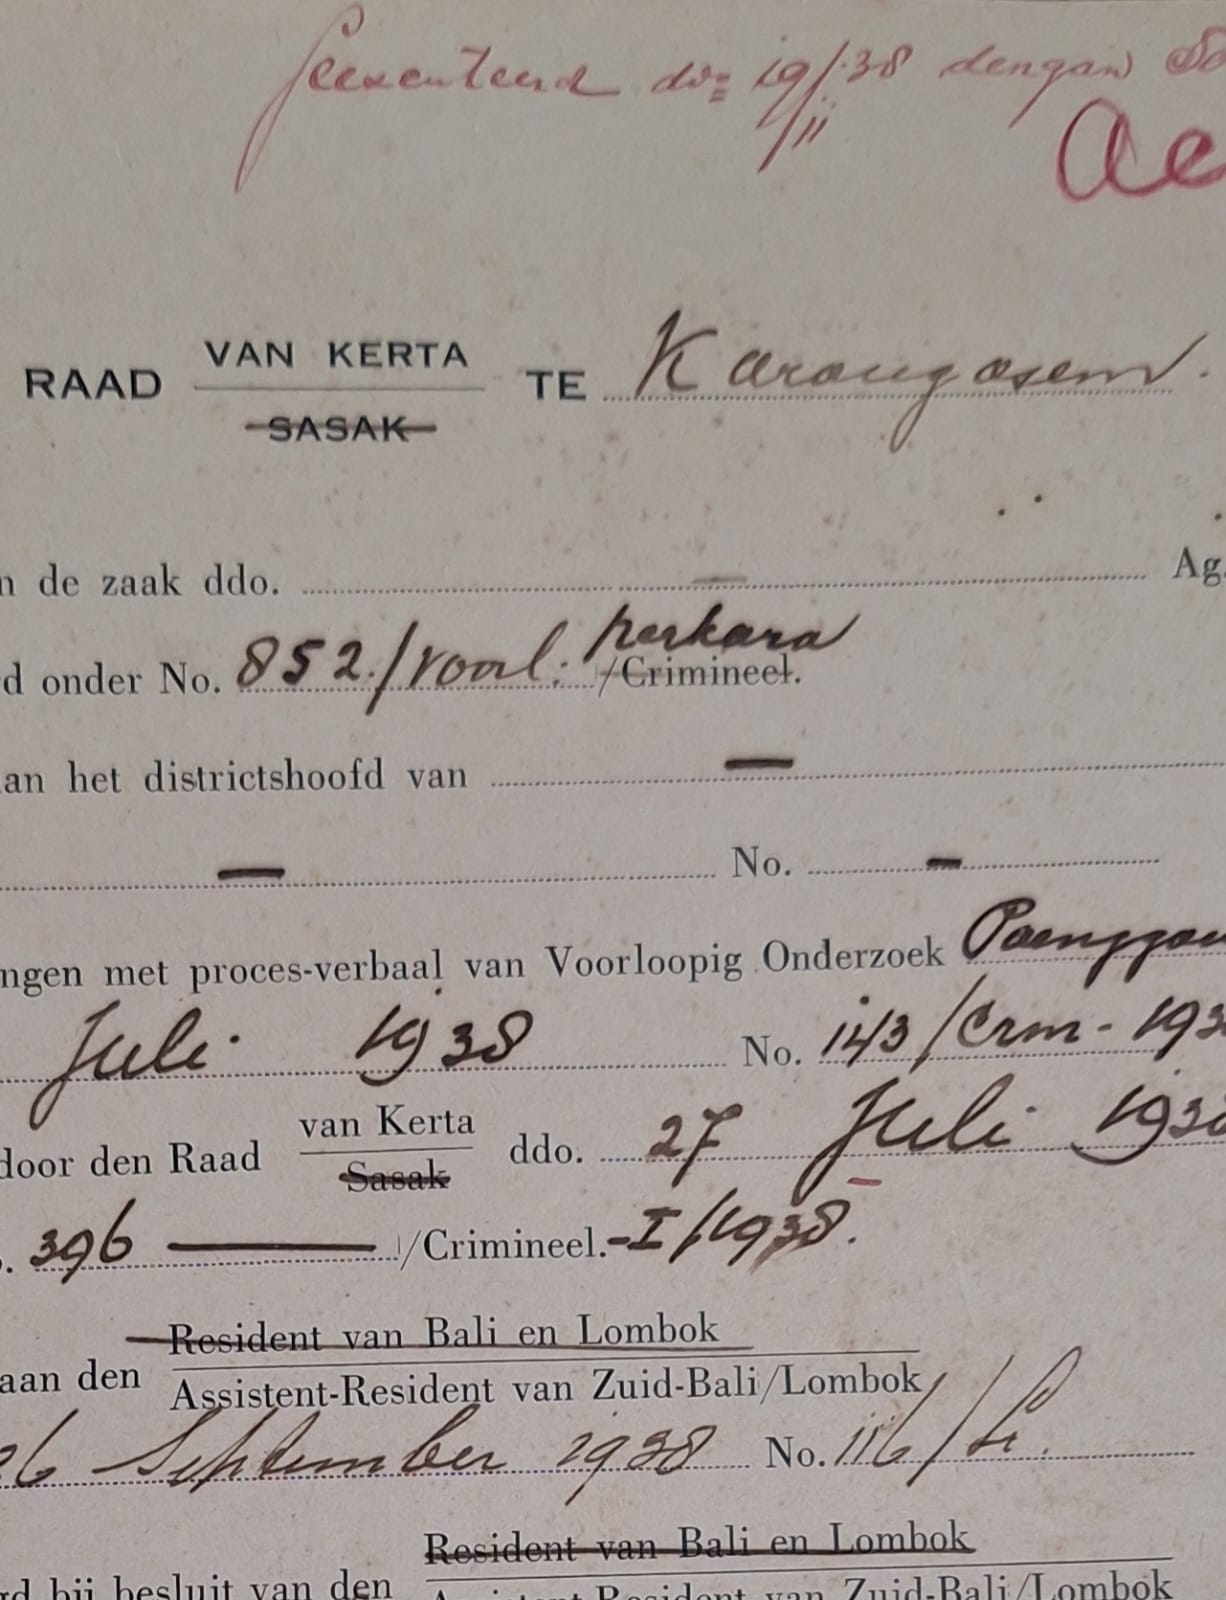 geexecuteerd ddo: 19/11·38 dengan
RAAD VAN KERTA TE Karangasem.
SASAK
n de zaak ddo. — Ag.
perkara
d onder No. 852./voorl: /Crimineel.
an het districtshoofd van —
— No. —
ngen met proces-verbaal van Voorloopig Onderzoek
Juli 1938 No. 143/Crm - 193
door den Raad van Kerta ddo. 27 Juli 1938
Sasak
. 396 — /Crimineel.-I/1938.
Resident van Bali en Lombok
aan den
Assistent-Resident van Zuid-Bali/Lombok
26 September 1938 No. 116/
Resident van Bali en Lombok
rd bij besluit van den
Assistent-Resident van Zuid-Bali/Lombok